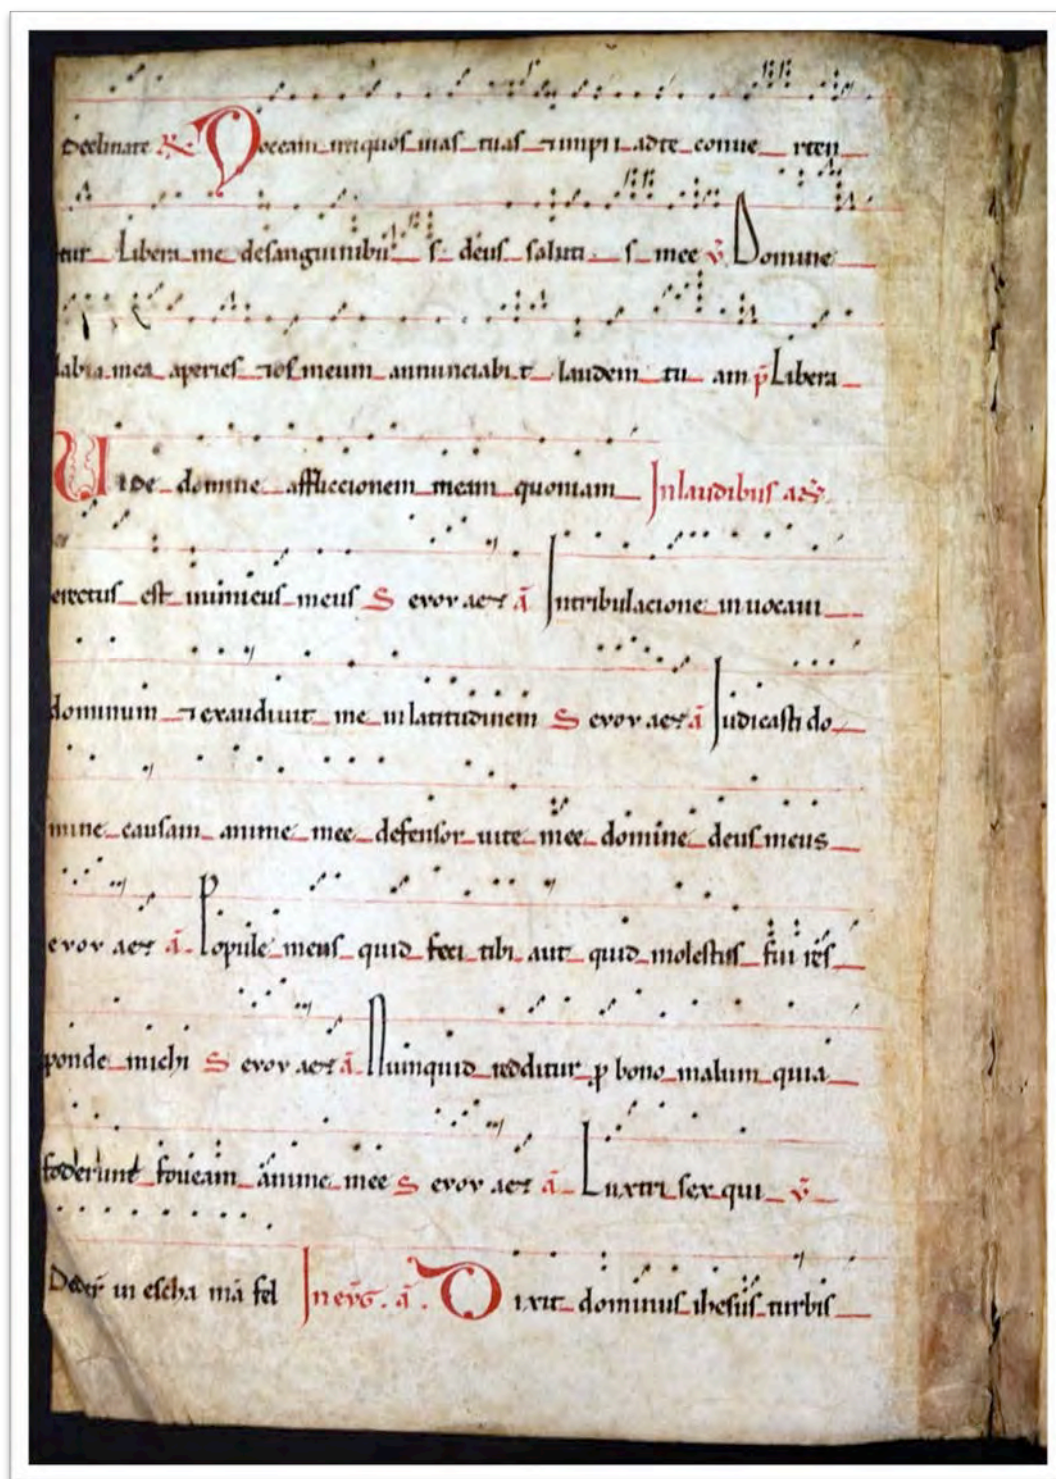 Declinate R Doceam iniquos uias tuas ⁊ impii ad te conue rten
tur Libera me de sanguinibu s deus saluti s mee v̄ Domine
labia mea aperies ⁊ os meum annunciabit laudem tu am p̄ Libera
Uide domine affliccionem meam quoniam In laudibus añ
erectus est inimicus meus S evovae ā In tribulacione inuocaui
dominum ⁊ exaudiuit me in latitudinem S evovae ā Iudicasti do
mine causam anime mee defensor uite mee domine deus meus
evovae ā Popule meus quid feci tibi aut quid molestus fui res
ponde michi S evovae ā Numquid redditur p bono malum quia
foderunt foueam anime mee S evovae ā Luxtri sex qui v̄
Deder in escha mā fel In evg. ā. Dixit dominus ihesus turbis